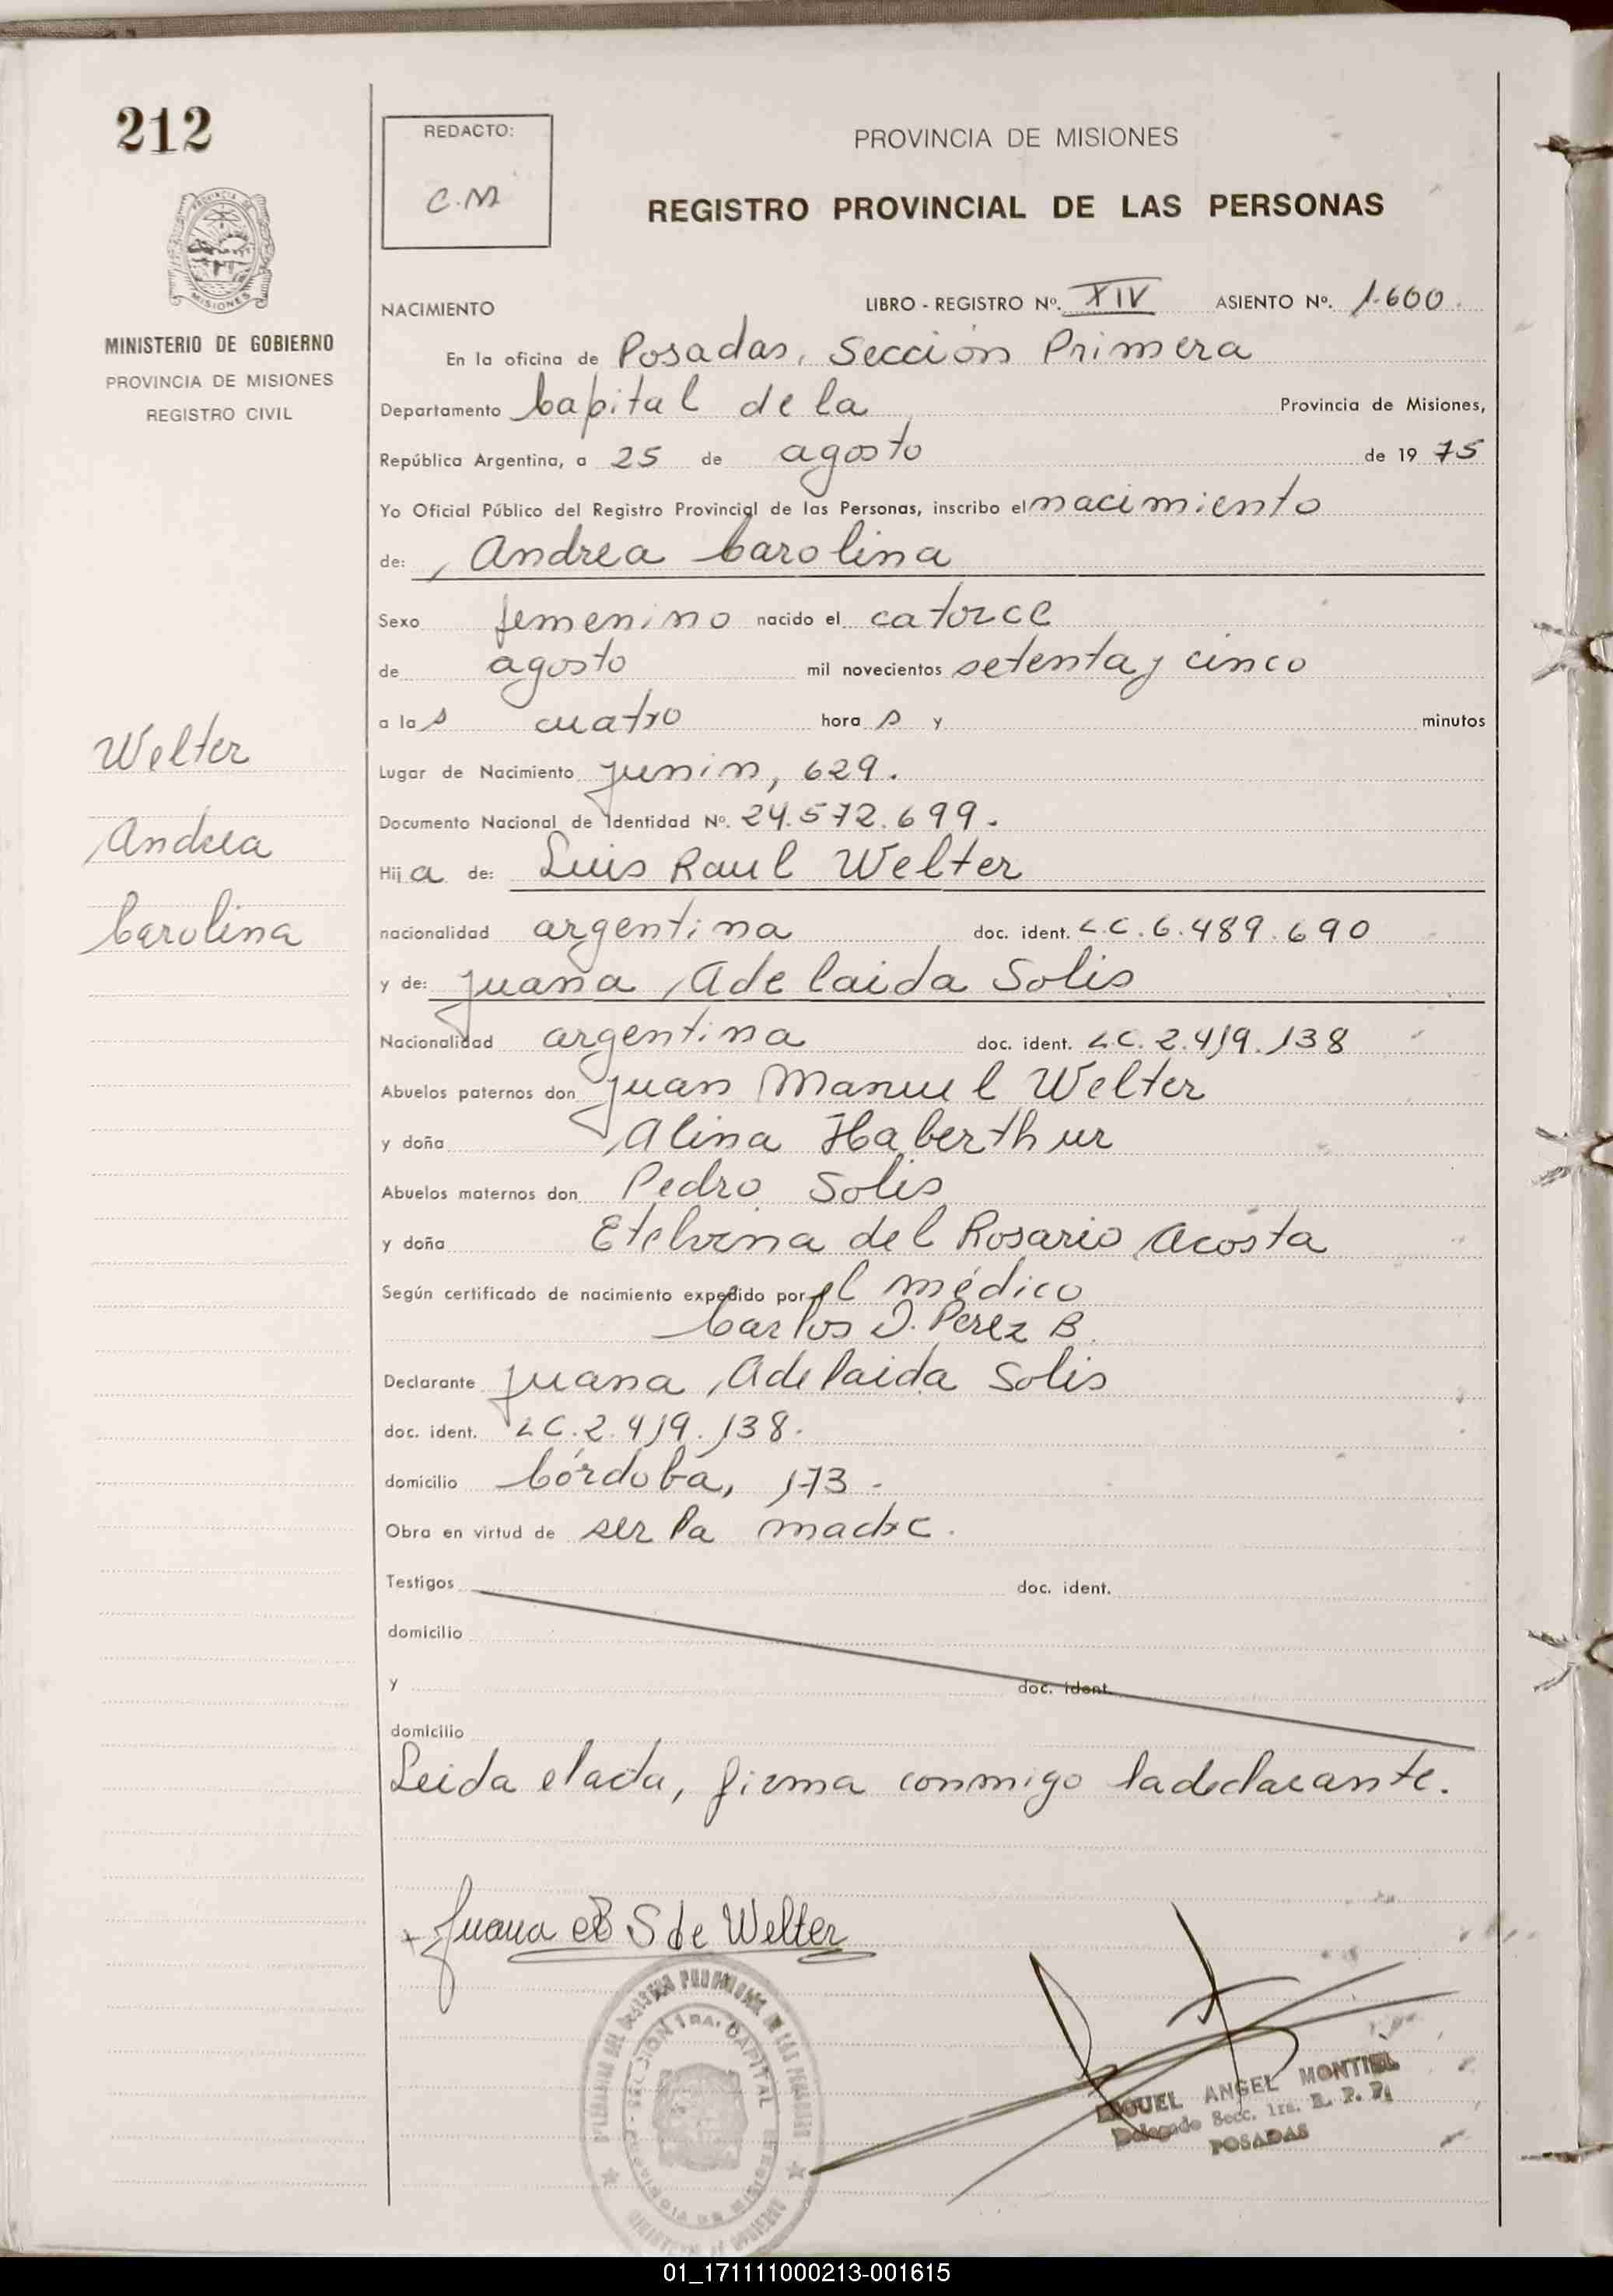 212
PROVINCIA DE
MISIONES
MINISTERIO DE GOBIERNO
PROVINCIA DE MISIONES
REGISTRO CIVIL
Welter
Andrea
Carolina
REDACTO:
C.M
PROVINCIA DE MISIONES
REGISTRO PROVINCIAL DE LAS PERSONAS
NACIMIENTO LIBRO - REGISTRO Nº. XIV ASIENTO Nº. 1.600.
En la oficina de Posadas, Sección Primera
Departamento Capital de la Provincia de Misiones,
República Argentina, a 25 de agosto de 19 75
Yo Oficial Público del Registro Provincial de las Personas, inscribo el nacimiento
de: Andrea Carolina
Sexo femenino nacido el catorce
de agosto mil novecientos setenta y cinco
a las cuatro horas y minutos
Lugar de Nacimiento Junin, 629.
Documento Nacional de Identidad Nº. 24.572.699.
Hija de: Luis Raul Welter
nacionalidad argentina doc. ident. L.C. 6.489.690
y de: Juana Adelaida Solis
Nacionalidad argentina doc. ident. L.C. 2.419.138
Abuelos paternos don Juan Manuel Welter
y doña Alina Haberthur
Abuelos maternos don Pedro Solis
y doña Etelvina del Rosario Acosta
Según certificado de nacimiento expedido por el médico
Carlos D. Perez B.
Declarante Juana Adelaida Solis
doc. ident. LC. 2.419.138.
domicilio Córdoba, 173.
Obra en virtud de ser la madre.
Testigos doc. ident.
domicilio
y doc. ident.
domicilio
Leida el acta, firma conmigo la declarante.
Juana S de Welter
SECCION 1RA. CAPITAL
MIGUEL ANGEL MONTIEL
Delegado Secc. 1ra. R. P. P.
POSADAS
01_171111000213-001615